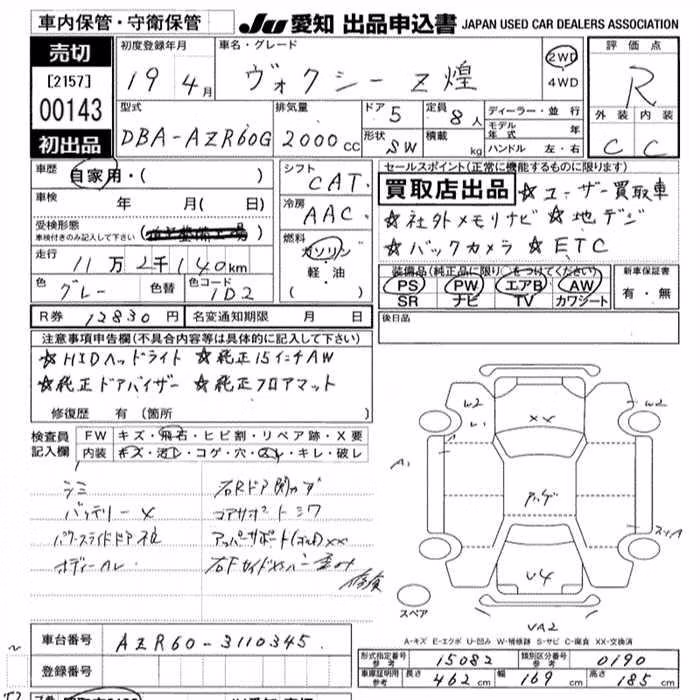 車内保管・守衛保管 JU 愛知 出品申込書 JAPAN USED CAR DEALERS ASSOCIATION
売切
[2157]
00143
初出品
初度登録年月
19 4月
車名・グレード
ヴォクシー Z煌
2WD
4WD
評価点
R
外装 内装
C C
型式
DBA-AZR60G
排気量
2000cc
ドア 5
形状 SW
定員 8人
積載 kg
ディーラー・並行
モデル年式 年
ハンドル 左・右
車歴 自家用・( )
車検 年 月( 日)
受検形態
車検付きのみ記入して下さい
走行 11万2千140km
色 グレー 色替 色コード 1D2
シフト
CAT.
冷房
AAC.
燃料
ガソリン
軽・油
( )
セールスポイント(正常に機能するものに限ります)
買取店出品 ☆ユーザー買取車
☆社外メモリナビ ☆地デジ
☆バックカメラ ☆ETC
装備品(純正品に限り○をつけてください)
PS PW エアB AW
SR ナビ TV カワシート
新車保証書
有・無
R券 12830円 名変通知期限 月 日
後日品
注意事項申告欄(不具合内容等は具体的に記入して下さい)
☆HIDヘッドライト ☆純正15インチAW
☆純正ドアバイザー ☆純正フロアマット
修復歴 有(箇所 )
検査員
記入欄
FW キズ・飛石・ヒビ割・リペア跡・X要
内装 キズ・汚レ・コゲ・穴・スレ・キレ・破レ
シミ
バッテリーX
パワースライドドア
ボディー
右Rドア
コアサポートシワ
アッパーサポート XX
右Fサイドメンバー
修復
W2
XX
W2
A1
アゲ
U4
UA2
スペア
A-キズ E-エクボ U-凹み W-補修跡 S-サビ C-腐食 XX-交換済
車台番号 AZR60-3110345.
登録番号
形式指定番号
参考
15082
類別区分番号
参考
0190
車庫証明用
参考
長さ 462cm 幅 169cm 高さ 185cm